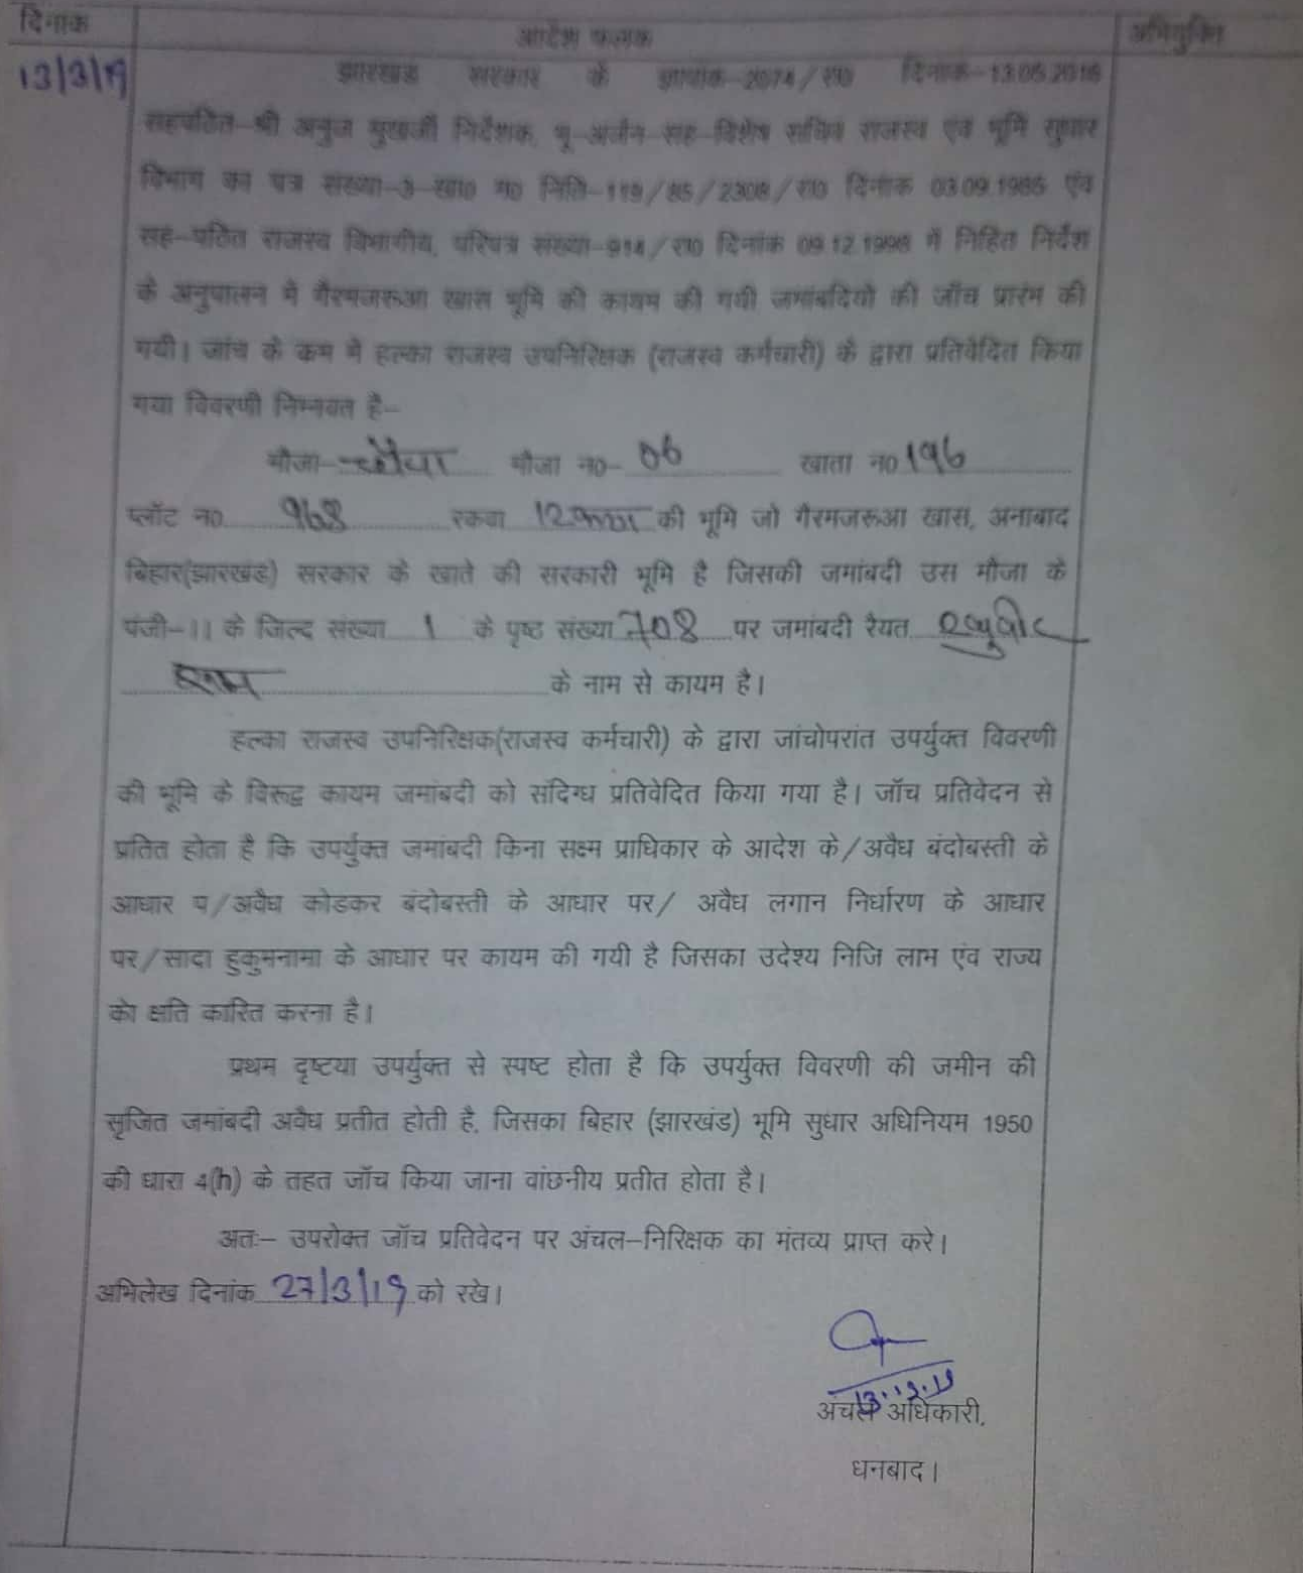 दिनांक आदेश फलक अभियुक्ति
13/3/19 झारखंड सरकार के ज्ञापांक-2074/रा0 दिनांक-13.05.2016
सहपठित-श्री अनुज मुखर्जी निर्देशक, भू-अर्जन-सह-विशेष सचिव राजस्व एवं भूमि सुधार
विभाग का पत्र संख्या-3-खा0 म0 निति-119/85/2308/रा0 दिनांक 03.09.1985 एंव
सह-पठित राजस्व विभागीय, परिपत्र संख्या-914/रा0 दिनांक 09.12.1998 में निहित निर्देश
के अनुपालन में गैरमजरूआ खास भूमि की कायम की गयी जमांबदियो की जॉच प्रारंम की
गयी। जांच के कम मे हल्का राजस्व उपनिरिक्षक (राजस्व कर्मचारी) के द्वारा प्रतिवेदित किया
गया विवरणी निम्नवत है-
मौजा- मौजा न0- 06 खाता न0 196
प्लॉट न0 968 रकवा 12 की भूमि जो गैरमजरूआ खास, अनाबाद
बिहार(झारखंड) सरकार के खाते की सरकारी भूमि है जिसकी जमांबदी उस मौजा के
पंजी-II के जिल्द संख्या 1 के पृष्ठ संख्या 708 पर जमांबदी रैयत
राम के नाम से कायम है।
हल्का राजस्व उपनिरिक्षक(राजस्व कर्मचारी) के द्वारा जांचोपरांत उपर्युक्त विवरणी
की भूमि के विरूद्व कायम जमांबदी को संदिग्ध प्रतिवेदित किया गया है। जॉच प्रतिवेदन से
प्रतित होता है कि उपर्युक्त जमांबदी किना सक्ष्म प्राधिकार के आदेश के/अवैध बंदोबस्ती के
आधार प/अवैध कोडकर बंदोबस्ती के आधार पर/ अवैध लगान निर्धारण के आधार
पर/सादा हुकुमनामा के आधार पर कायम की गयी है जिसका उदेश्य निजि लाभ एंव राज्य
को क्षति कारित करना है।
प्रथम दृष्टया उपर्युक्त से स्पष्ट होता है कि उपर्युक्त विवरणी की जमीन की
सृजित जमांबदी अवैध प्रतीत होती है, जिसका बिहार (झारखंड) भूमि सुधार अधिनियम 1950
की धारा 4(h) के तहत जॉच किया जाना वांछनीय प्रतीत होता है।
अतः- उपरोक्त जॉच प्रतिवेदन पर अंचल-निरिक्षक का मंतव्य प्राप्त करे।
अभिलेख दिनांक 27/3/19 को रखे।
अंचल अधिकारी,
धनबाद।